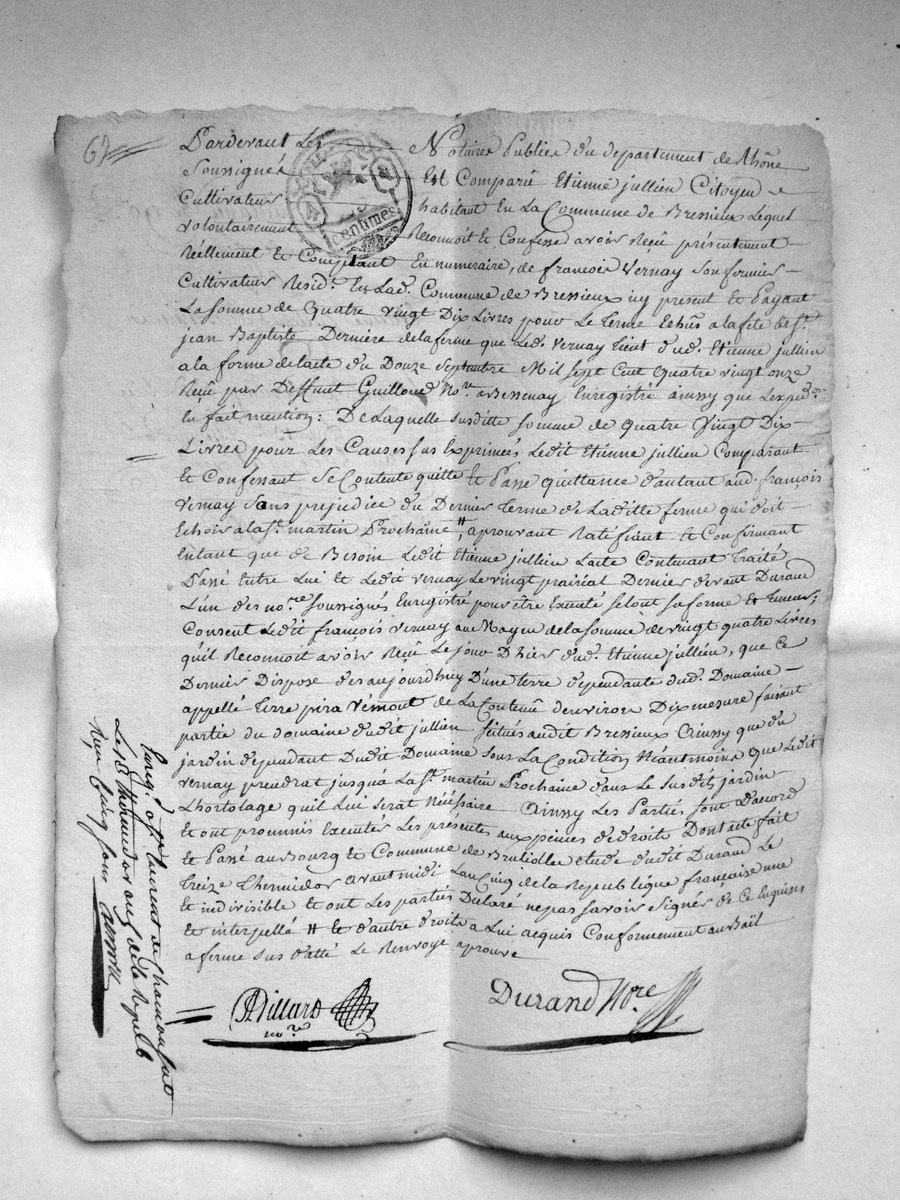 67
Pardevant Les Notaires Publics du departement de Rhône
Soussignés Est Comparu Etienne jullien Citoyen
Cultivateur habitant En La Commune de Bressieux Lequel
volontairement Reconnoit et Confesse avoir Reçu présentement
Réellement et Comptant En numeraire, de francois Vernay son fermier
Cultivateur Resid.t En Lad. Commune de Bressieux icy present et Payant
La somme de Quatre vingt Dix Livres pour Le terme Echus a la fete de St.
jean Baptiste Derniere de la ferme que Led. Vernay tient dud. Etienne jullien
a la forme de lacte du Douze Septembre Mil Sept Cent Quatre vingt onze
Reçu par Deffunt Guilloud No.re a Bessenay Enregistré ainsy que Lexped.on
En fait mention : De Laquelle Susditte somme de quatre Vingt Dix
Livres pour Les Causes sus Exprimés Ledit Etienne jullien Comparant
et Confessant Se Contente quitte et Passe quittance d'autant aud. francois
Vernay Sans prejudice du Dernier terme de Laditte ferme qui doit
Echoir a la St. martin Prochaine #, aprouvant Ratéfiant et Confirmant
Entant que de Besoin Ledit Etienne jullien Lacte Contenant traité
Passé Entre Lui et Ledit Vernay Le vingt prairial Dernier devant Durand
L'un des no.re Soussignés Enregistré pour etre Exeuté selont sa forme et teneur;
Consent Ledit françois Vernay au Moyen de la somme de vingt quatre Livres
quil Reconnoit avoir Reçu Le jour D'hier dud. Etienne jullien, que Ce
Dernier Dispose des aujourdhuy D'une terre dependante dud. Domaine
appellé terre pira Vemont de La Contenue denviron Dix mesure faisant
partie du domaine dudit jullien situés audit Bressieux Ainsy que du
jardin dependant Dudit Domaine sous La Condition Néantmoins que Ledit
Vernay prendrat jusqua La St. martin Prochaine dans Le susdit jardin
Lhortolage quil Lui Serat Nécessaire Ainsy Les Parties sont Dacord
et ont prommis Executer Les présentes aux peines de droits Dont acte fait
et Passé au Bourg et Commune de Brulidlle etude dudit Durand Le
treize thermidor avant midi L'an Cinq de la Republique française une
et indivisible et ont Les parties Declaré ne pas savoir signer de Ce Enquises
et interpellé # et d'autre droits a Lui acquis Conformement au Bail
a ferme sus datté Le Renvoye aprouve
Durand No.re
centimes